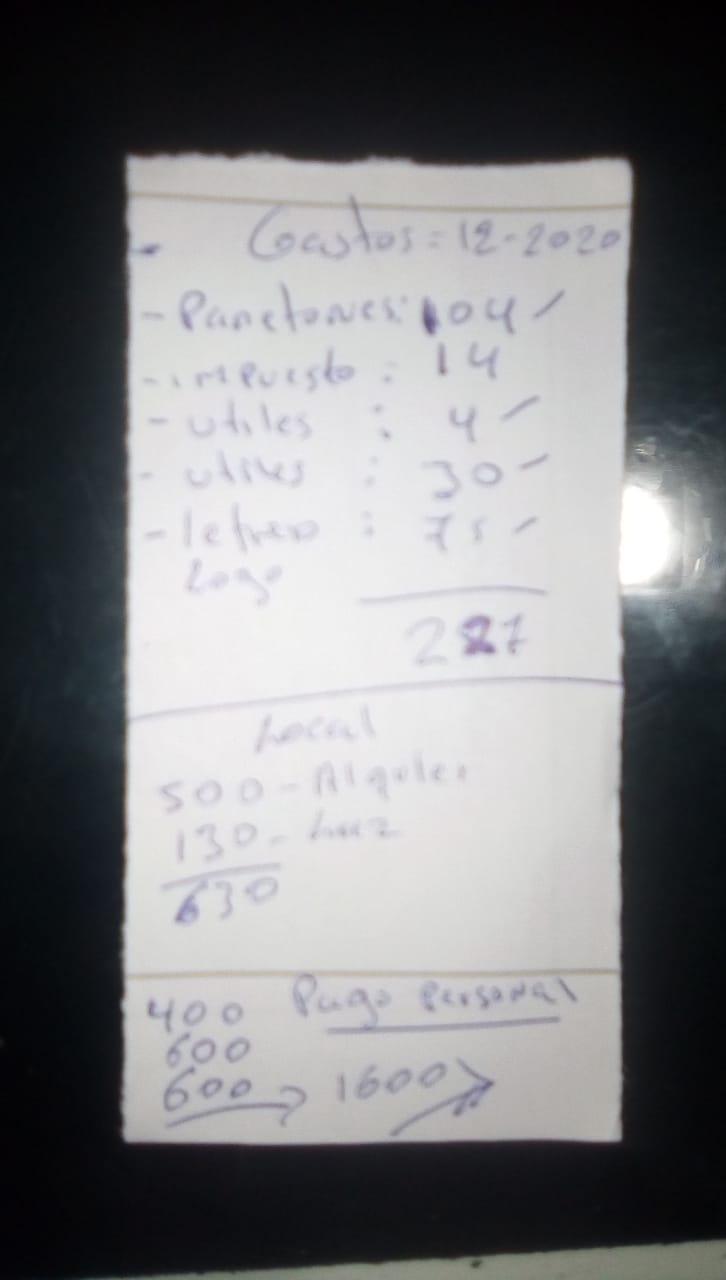 - Gastos = 12-2020
- Panetones: 104 /
- impuesto : 14
- utiles : 4 /
- utiles : 30 /
- letrero : 75 /
Logo
227
Local
500 - Alquiler
130 - Luz
630
400 Pago Personal
600
600 → 1600